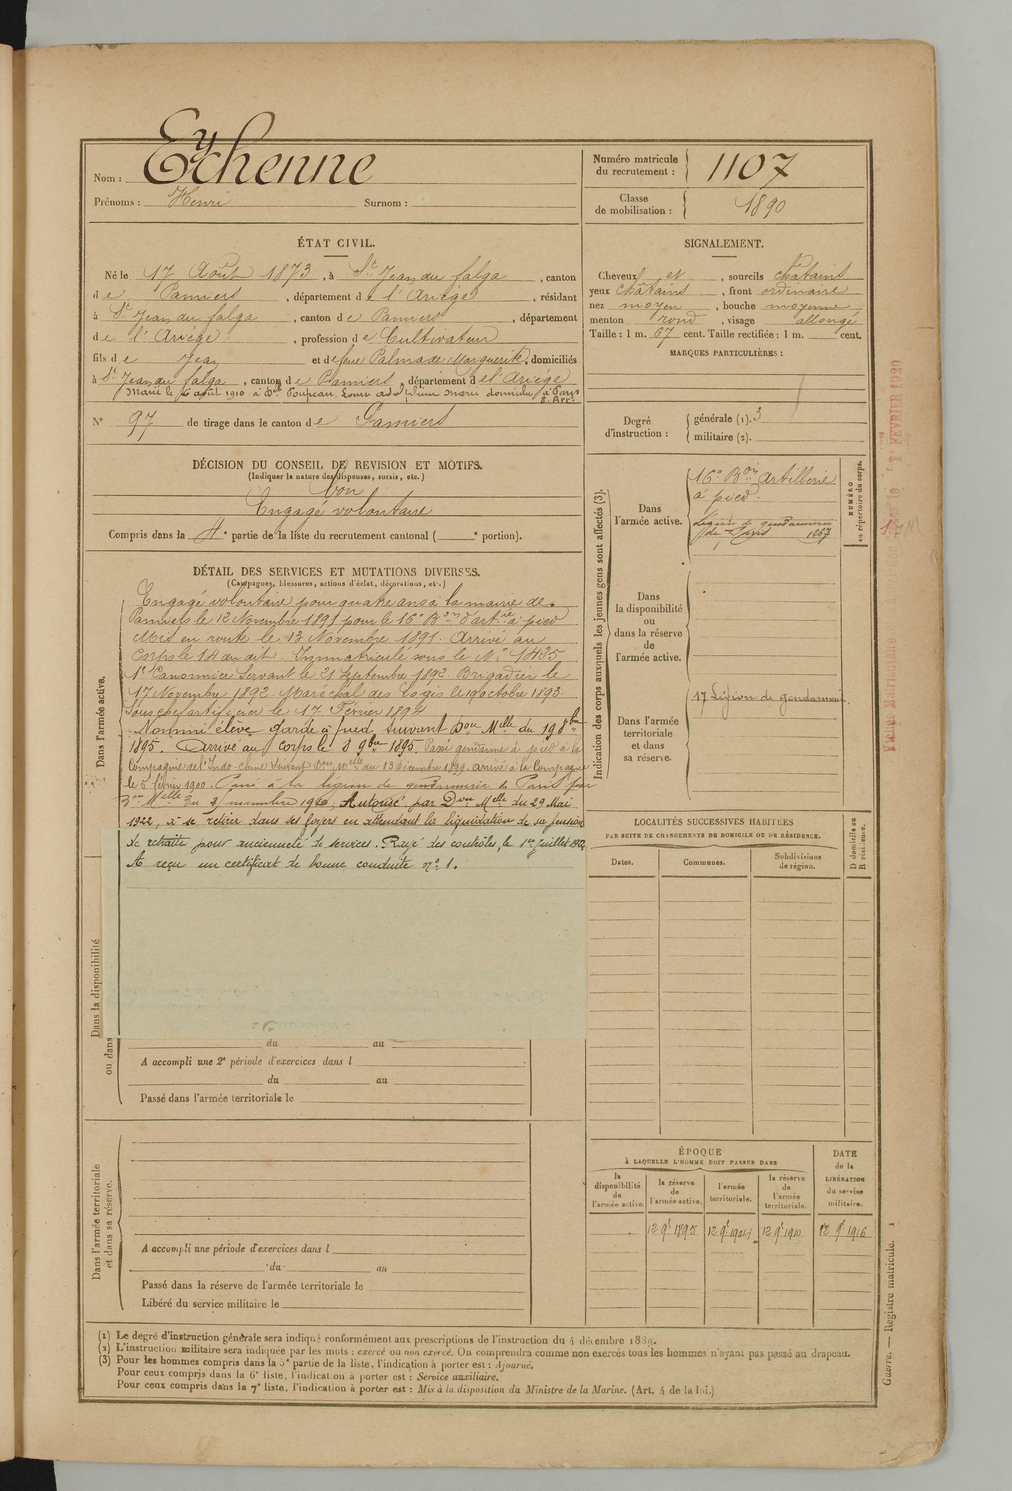 Nom : Eychenne
Prénoms : Henri Surnom :
Numéro matricule du recrutement : 1107
Classe de mobilisation : 1890
ÉTAT CIVIL.
Né le 17 Août 1873, à St Jean du falga, canton
de Pamiers, département de l'Ariège, résidant
à St Jean du falga, canton de Pamiers, département
de l'Ariège, profession de Cultivateur
fils de Jean et de feue Palmade Marguerite, domiciliés
à St Jean du falga, canton de Pamiers, département de l'Ariège
Marié le 6 août 1910 à Dlle Pupeau domicilié à Paris
8. Arrt
N° 97 de tirage dans le canton de Pamiers
SIGNALEMENT.
Cheveux et, sourcils châtains
yeux châtains, front ordinaire
nez moyen, bouche moyenne
menton rond, visage allongé
Taille : 1 m. 67 cent. Taille rectifiée : 1 m. cent.
MARQUES PARTICULIÈRES :
Degré d'instruction : générale (1). 3
militaire (2).
DÉCISION DU CONSEIL DE REVISION ET MOTIFS.
(Indiquer la nature des dispenses, sursis, etc.)
Bon
Engagé volontaire
Compris dans la 4e partie de la liste du recrutement cantonal ( e portion).
DÉTAIL DES SERVICES ET MUTATIONS DIVERSES.
(Campagnes, blessures, actions d'éclat, décorations, etc.)
Dans l'armée active.
Engagé volontaire pour quatre ans à la mairie de
Pamiers le 12 Novembre 1891 pour le 16e Bon d'artrie à pied
Mis en route le 13 Novembre 1891. Arrivé au
Corps le 14 au dit. Immatriculé sous le N° 1435
1er Canonnier Servant le 21 Septembre 1892. Brigadier le
17 Novembre 1892. Maréchal des Logis le 19 octobre 1893.
Sous chef artificier le 17 Février 1894
Nommé élève garde à pied, suivant Don Melle du 19 8bre
1895. Arrivé au corps le 8 9bre 1895. Passé gendarme à pied à la
Compagnie de l'Indo-Chine suivant Don Melle du 13 décembre 1899. Arrivé à la Compagnie
le 5 février 1900. Passé à la légion de gendarmerie de Paris par
Don Melle du novembre Autorisé par Don Melle du 29 Mai
1922, à se retirer dans ses foyers en attendant la liquidation de sa pension
de retraite pour ancienneté de services. Rayé des contrôles, le 1er Juillet 1922
A reçu un certificat de bonne conduite n° 1.
Dans la disponibilité
ou dans
du au
A accompli une 2e période d'exercices dans l
du au
Passé dans l'armée territoriale le
Dans l'armée territoriale
et dans sa réserve.
A accompli une période d'exercices dans l
du au
Passé dans la réserve de l'armée territoriale le
Libéré du service militaire le
Indication des corps auxquels les jeunes gens sont affectés (3).
NUMÉRO
au répertoire du corps.
Dans l'armée active.
16e Bon artillerie
à pied.
Légion de gendarmerie
de Paris 1267
Dans la disponibilité ou dans la réserve de l'armée active.
Dans l'armée territoriale et dans sa réserve.
17 Légion de gendarmerie
LOCALITÉS SUCCESSIVES HABITÉES
PAR SUITE DE CHANGEMENTS DE DOMICILE OU DE RÉSIDENCE.
Dates. Communes. Subdivisions de région. D domicile ou R résidence.
ÉPOQUE
À LAQUELLE L'HOMME DOIT PASSER DANS
la disponibilité de l'armée active. la réserve de l'armée active. l'armée territoriale. la réserve de l'armée territoriale.
DATE de la LIBÉRATION du service militaire.
12 9e 1895 12 9e 1910 12 9e 1916
(1) Le degré d'instruction générale sera indiqué conformément aux prescriptions de l'instruction du 4 décembre 1889.
(2) L'instruction militaire sera indiquée par les mots : exercé ou non exercé. On comprendra comme non exercés tous les hommes n'ayant pas passé au drapeau.
(3) Pour les hommes compris dans la 5e partie de la liste, l'indication à porter est : Ajourné.
Pour ceux compris dans la 6e liste, l'indication à porter est : Service auxiliaire.
Pour ceux compris dans la 7e liste, l'indication à porter est : Mis à la disposition du Ministre de la Marine. (Art. 4 de la loi.)
Guerre. — Registre matricule. 1
FEVRIER 1920